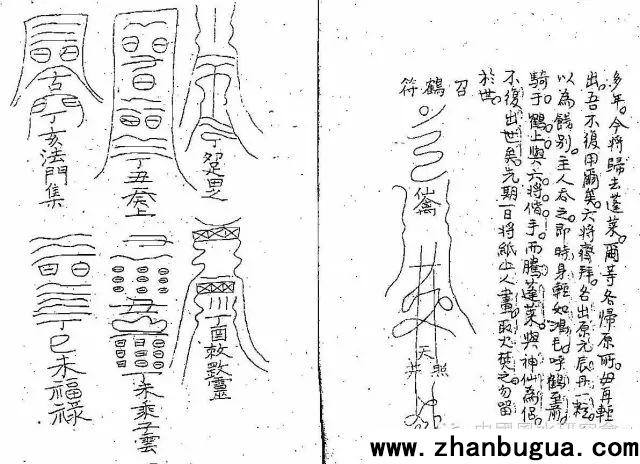 多年。今將歸去蓬萊。爾等各歸原所。毋再輕
出。吾不復用爾矣。六將齊拜。各出原元辰丹一粒
以為餞別。主人吞之。即時身輕如鴻毛。呼鶴至前
騎于鶴上。與六將偕手。而騰蓬萊。與神仙為侶。
不復出世矣。先期一日將紙上人畫取火焚之。勿留
於世。
召鶴符
仙禽
天
照
丁
丁丑癸上
古
丁亥法門集
丁酉敕致靈
丁未乘子雲
丁巳未福祿
www.zhanbugua.com